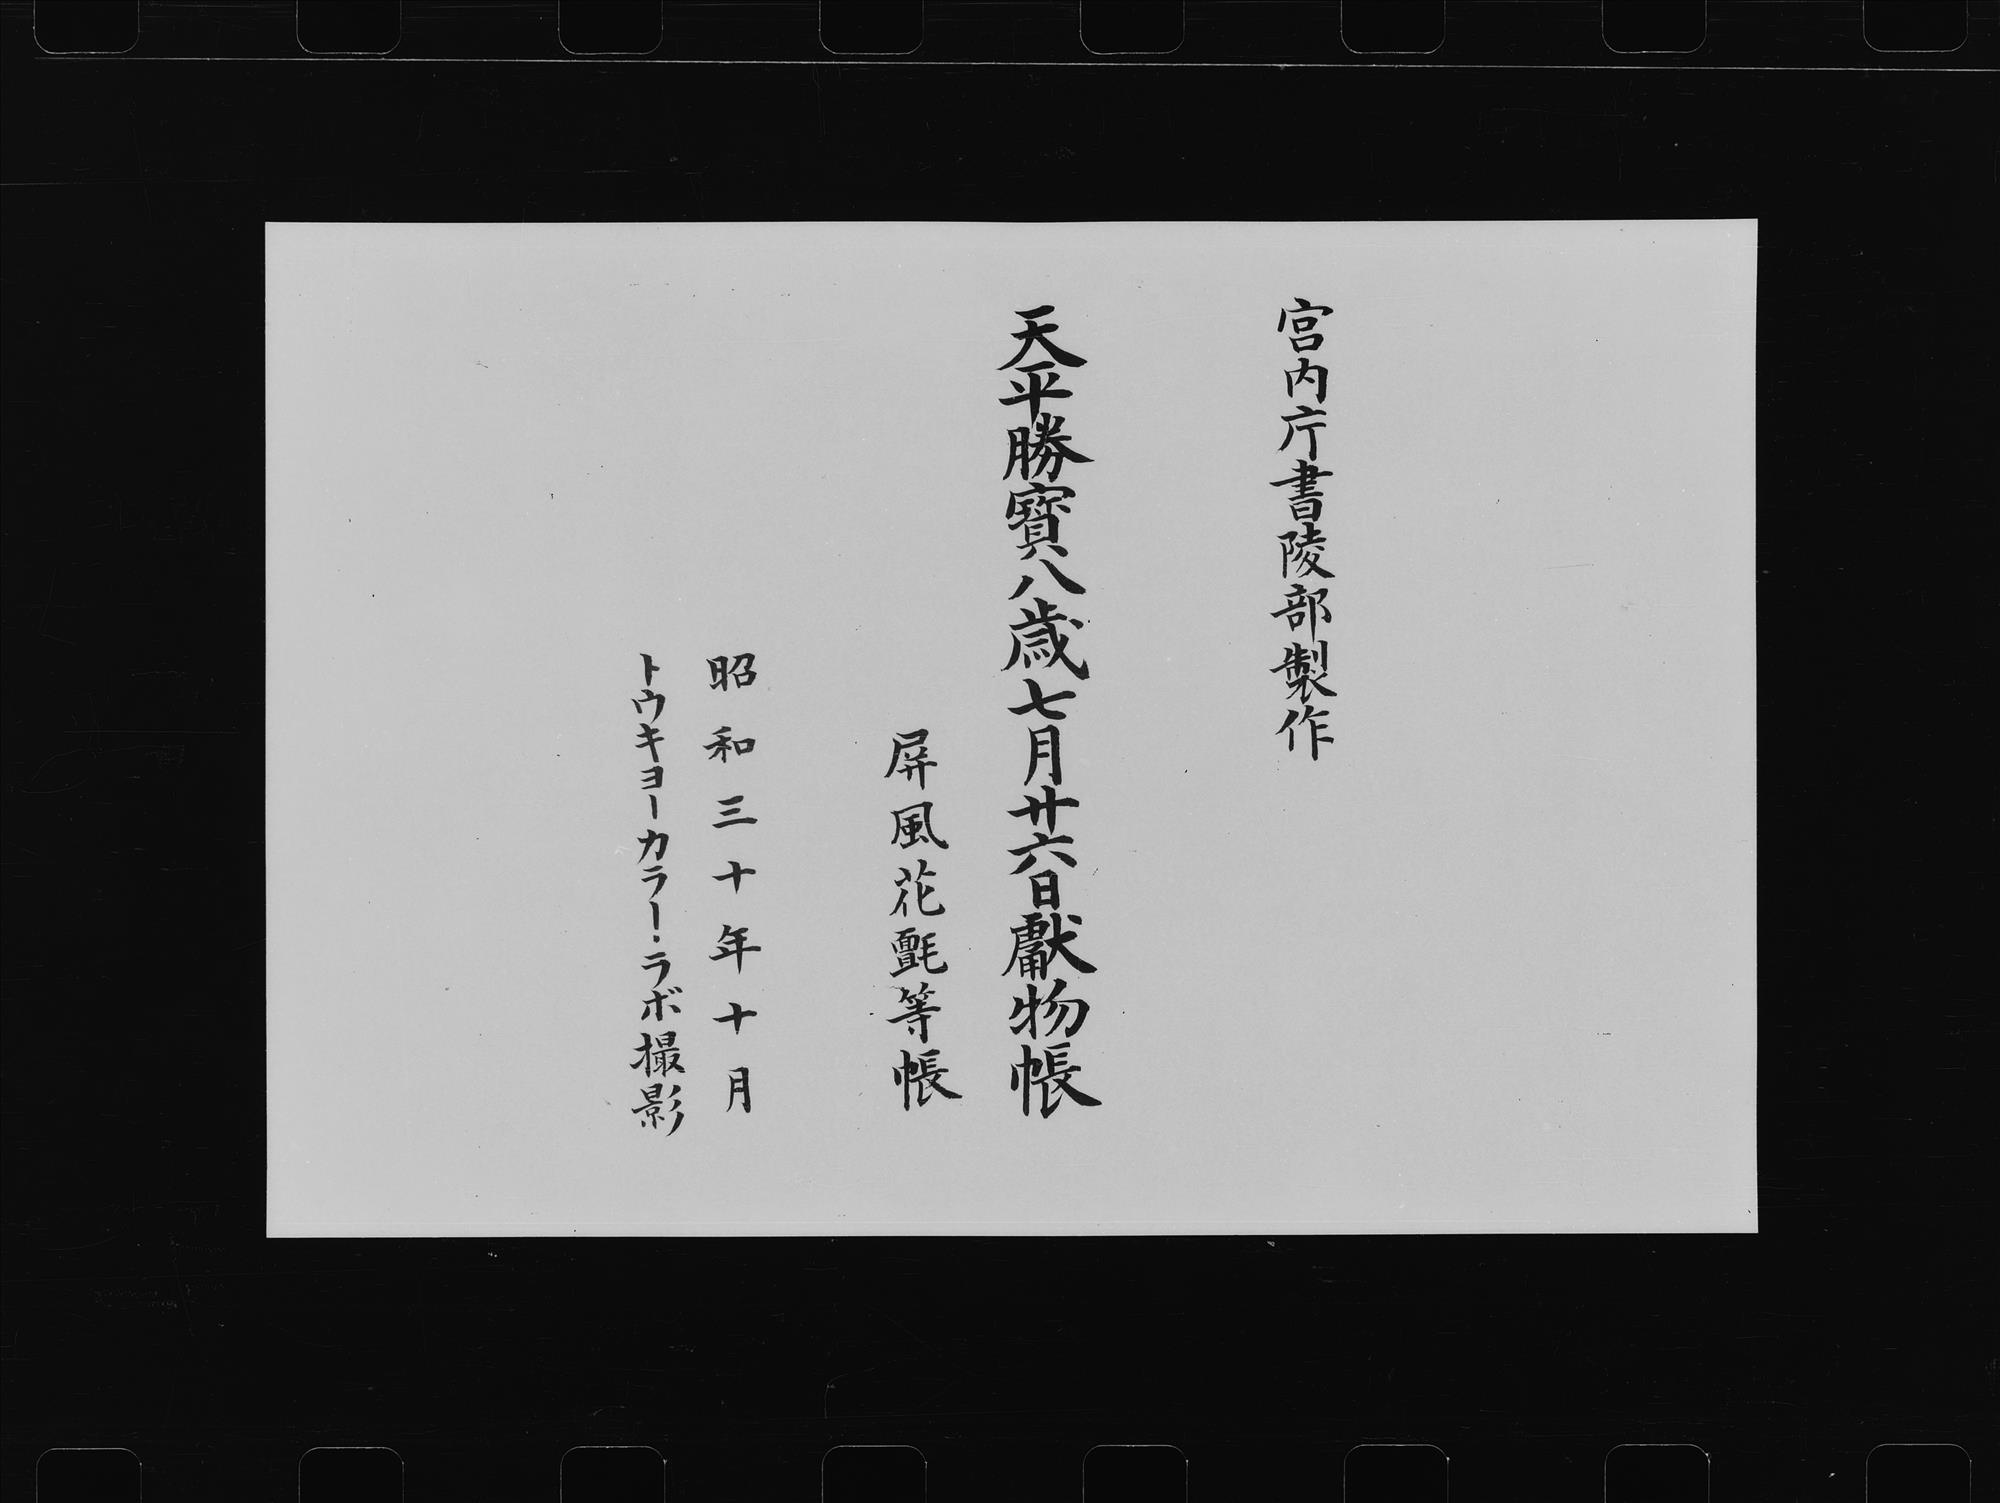 宮内庁書陵部製作
天平勝寳八歳七月廿六日獻物帳
屏風花氈等帳
昭和三十年十月
トウキョーカラー・ラボ撮影